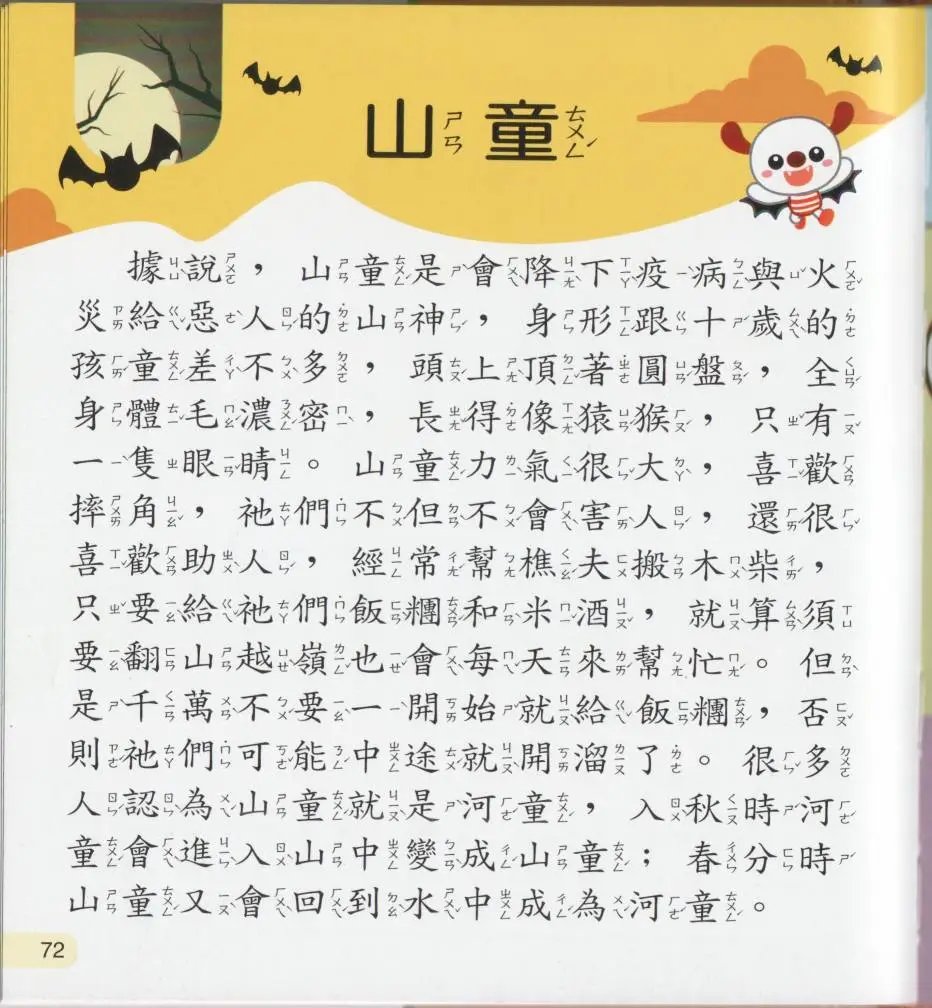 山童
據說，山童是會降下疫病與火
災給惡人的山神，身形跟十歲的
孩童差不多，頭上頂著圓盤，全
身體毛濃密，長得像猿猴，只有
一隻眼睛。山童力氣很大，喜歡
摔角，祂們不但不會害人，還很
喜歡助人，經常幫樵夫搬木柴，
只要給祂們飯糰和米酒，就算須
要翻山越嶺也會每天來幫忙。但
是千萬不要一開始就給飯糰，否
則祂們可能中途就開溜了。很多
人認為山童就是河童，入秋時河
童會進入山中變成山童；春分時
山童又會回到水中成為河童。
72